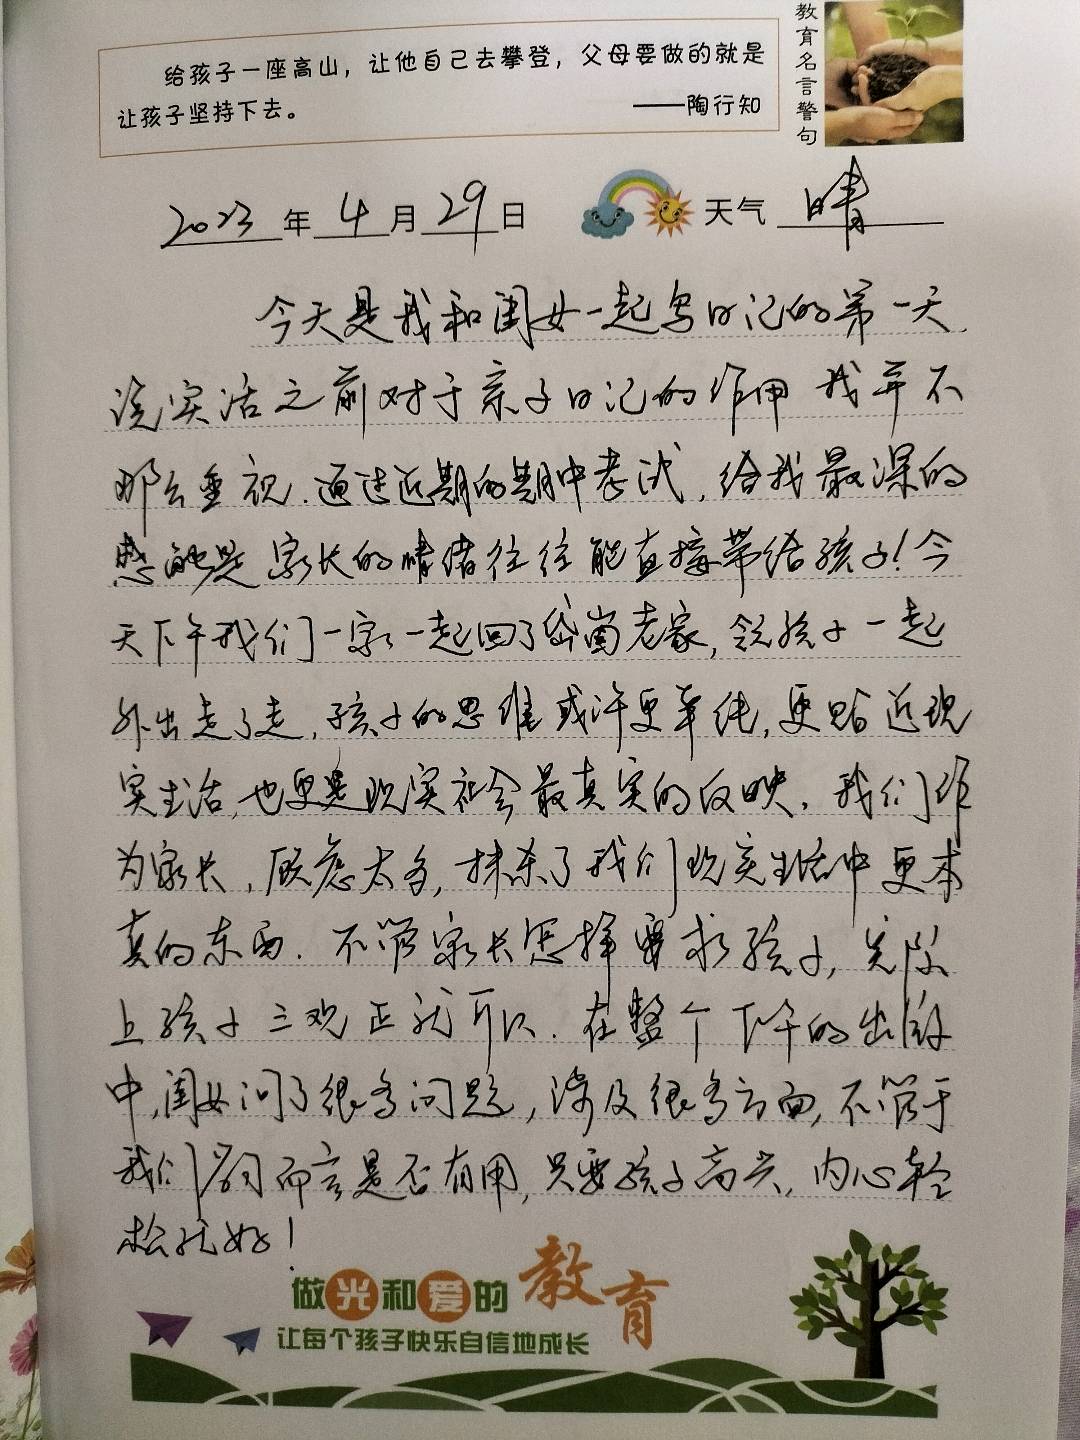 给孩子一座高山，让他自己去攀登，父母要做的就是
让孩子坚持下去。
——陶行知
教育名言警句
2023年4月29日 天气 晴
今天是我和闺女一起写日记的第一天，
说实话之前对于亲子日记的作用 我并不
那么重视．通过近期的期中考试，给我最深的
感触是 家长的情绪往往能直接带给孩子！今
天下午我们一家一起回了岱崮老家，领孩子一起
外出走了走，孩子的思维或许更单纯，更贴近现
实生活，也更是现实社会最真实的反映，我们作
为家长，顾虑太多，抹杀了我们现实生活中更本
真的东西．不管家长怎样要求孩子，
上孩子三观正就可以．在整个下午的出游
中，闺女问了很多问题，涉及很多方面，不管于
我们 而言是否有用，只要孩子高兴，内心轻
松就好！
做光和爱的教育
让每个孩子快乐自信地成长